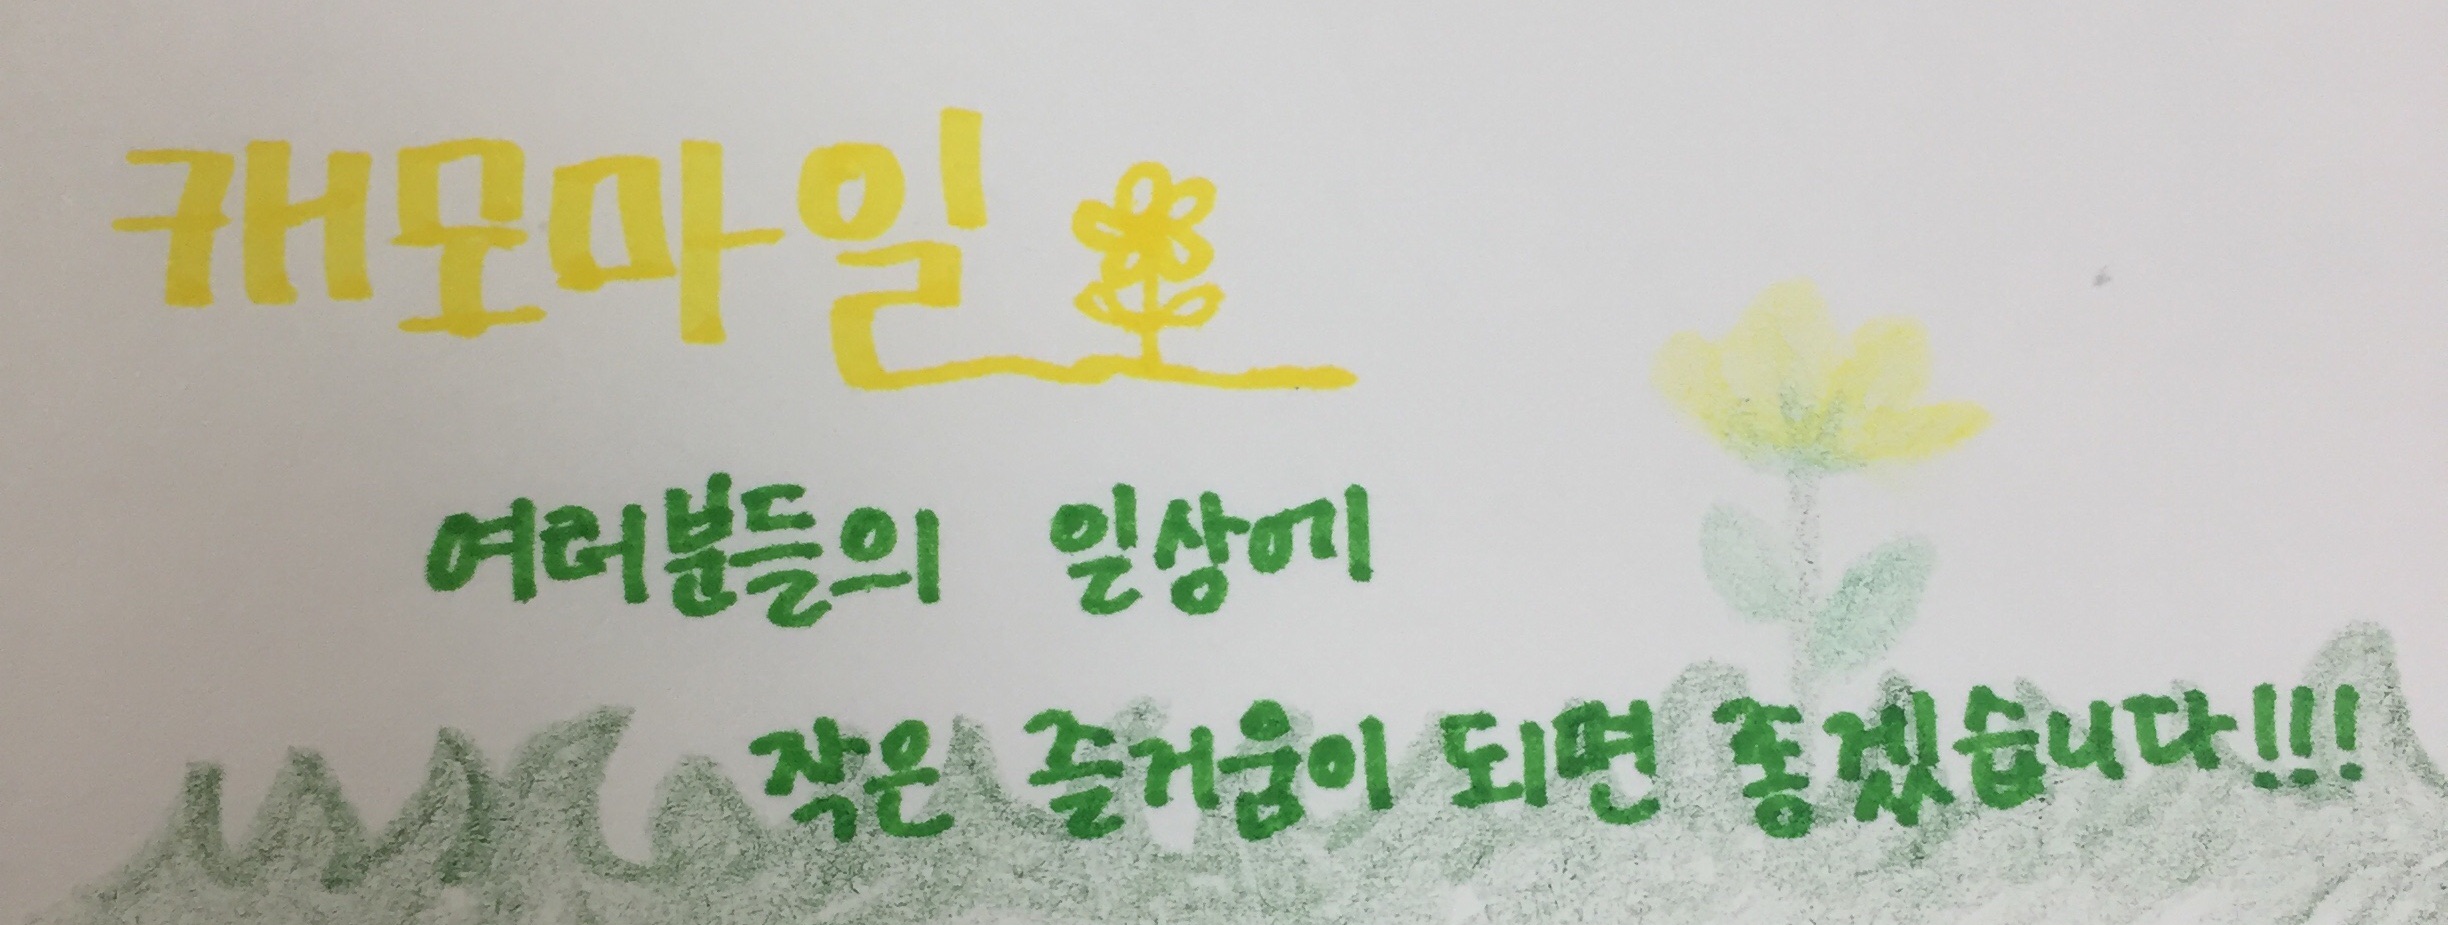 캐모마일
여러분들의 일상에
작은 즐거움이 되면 좋겠습니다!!!